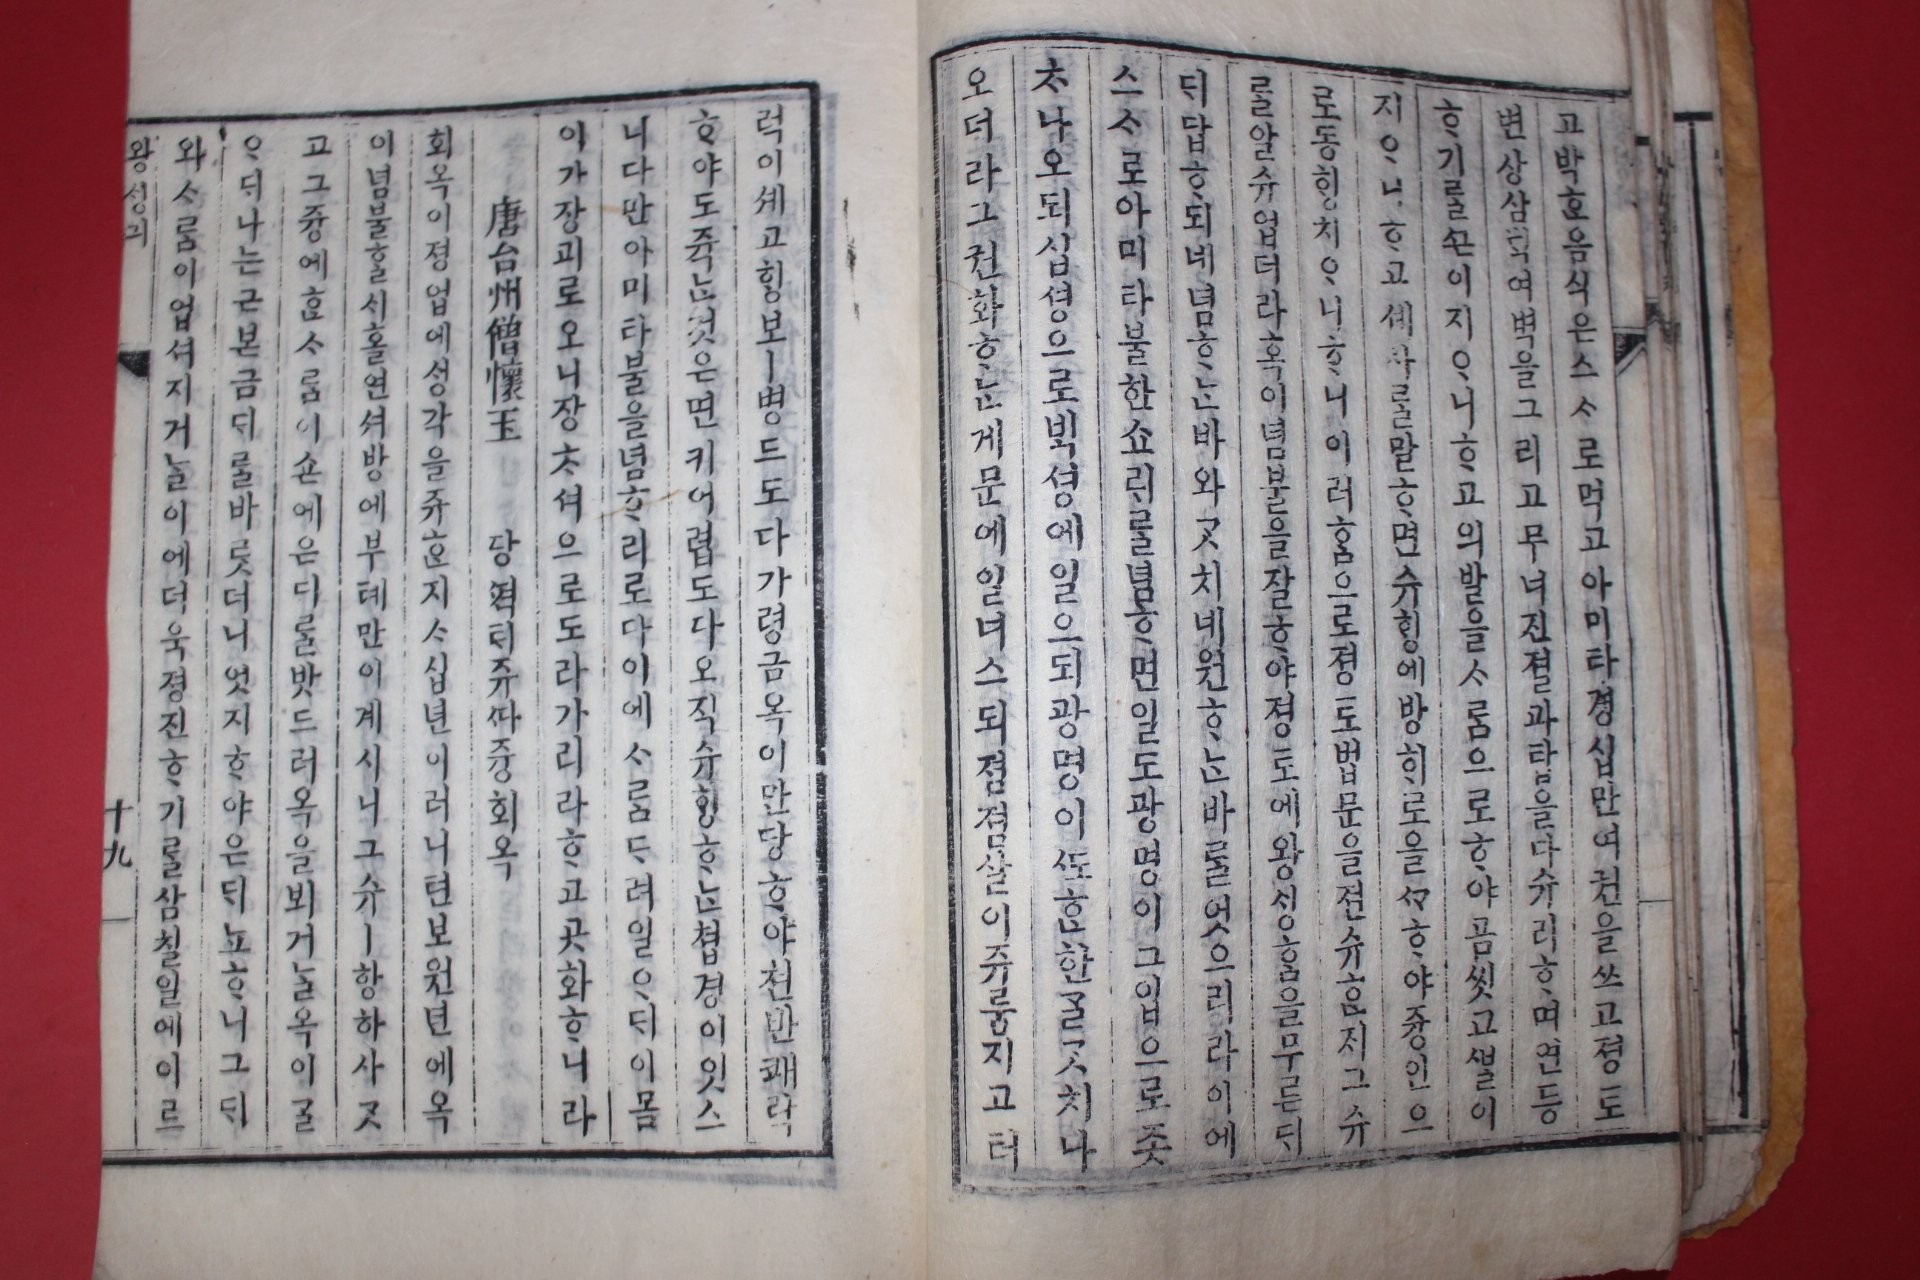 고박ᄒᆞᆫ음식은스ᄉᆞ로먹고아미타경십만여권을쓰고졍토
변상삼ᄇᆡᆨ여벽을그리고무너진졀과탑을다슈리ᄒᆞ며연등
ᄒᆞ기ᄅᆞᆯᄭᅳᆫ이지ᄋᆞ니ᄒᆞ고의발을사ᄅᆞᆷ으로ᄒᆞ야곰씻고ᄲᆞᆯ이
지ᄋᆞ니ᄒᆞ고셰ᄉᆞᄅᆞᆯ말ᄒᆞ면슈ᄒᆡᆼ에방ᄒᆡ로을ᄭᅴᄒᆞ야즁인으
로동ᄒᆡᆼ치ᄋᆞ니ᄒᆞ니이러ᄒᆞᆷ으로졍토법문을젼슈ᄒᆞᆷ지그슈
ᄅᆞᆯ알슈업더라혹이념불을잘ᄒᆞ야졍토에왕ᄉᆡᆼᄒᆞᆷ을무른ᄃᆡ
ᄃᆡ답ᄒᆞ되네념ᄒᆞᄂᆞᆫ바와ᄀᆞᆺ치네원ᄒᆞᄂᆞᆫ바ᄅᆞᆯ엇으리라이에
스ᄉᆞ로아미타불한쇼리ᄅᆞᆯ념ᄒᆞ면일도광명이그입으로좃
ᄎᆞ나오되십셩으로ᄇᆡᆨ셩에일으되광명이ᄯᅩᄒᆞᆫ한ᄀᆞᆯᄀᆞᆺ치나
오더라그권화ᄒᆞᄂᆞᆫ게문에일너스되졈졈살이쥬룸지고터
럭이셰고ᄒᆡᆼ보ㅣ병드도다가령금옥이만당ᄒᆞ야천반쾌락
ᄒᆞ야도쥭ᄂᆞᆫ것은면키어렵도다오직슈ᄒᆡᆼᄒᆞᄂᆞᆫ쳡경이잇스
니다만아미타불을념ᄒᆞ리로다이에ᄉᆞᄅᆞᆷᄃᆞ려일ᄋᆞᄃᆡ이몸
이가장괴로오니장ᄎᆞ셔으로도라가리라ᄒᆞ고곳화ᄒᆞ니라
唐台州僧懷玉 당젹ᄐᆡ쥬ᄯᅡ즁회옥
회옥이졍업에ᄉᆡᆼ각을쥬ᄒᆞᆫ지ᄉᆞ십년이러니텬보원년에옥
이념불ᄒᆞᆯ시홀연셔방에부톄만이계시니그슈ㅣ항하사ᄀᆞᆺ
고그즁에ᄒᆞᆫᄉᆞᄅᆞᆷ이손에은ᄃᆡᄅᆞᆯ밧드러옥을뵈거ᄂᆞᆯ옥이ᄀᆞᆯ
ᄋᆞᄃᆡ나는근본금ᄃᆡᄅᆞᆯ바랏더니엇지ᄒᆞ야은ᄃᆡ뇨ᄒᆞ니그ᄃᆡ
와ᄉᆞᄅᆞᆷ이업셔지거ᄂᆞᆯ이에더욱졍진ᄒᆞ기ᄅᆞᆯ삼칠일에이르
왕ᄉᆡᆼ
十九